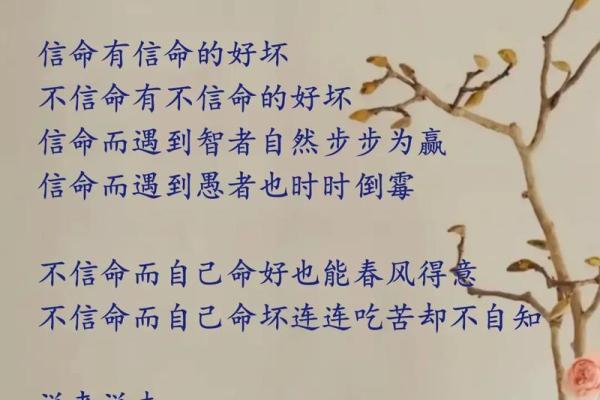 信命有信命的好坏
不信命有不信命的好坏
信命而遇到智者自然步步为赢
信命而遇到愚者也时时倒霉
不信命而自己命好也能春风得意
不信命而自己命坏连连吃苦却不自知